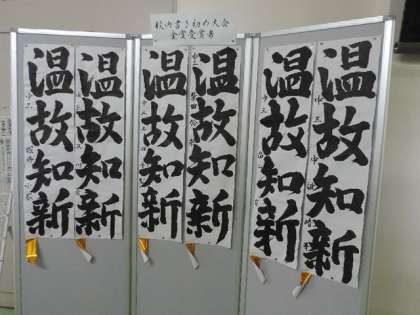 校内書き初め大会
金賞受賞者
温故知新
温故知新
温故知新
温故知新
温故知新
温故知新